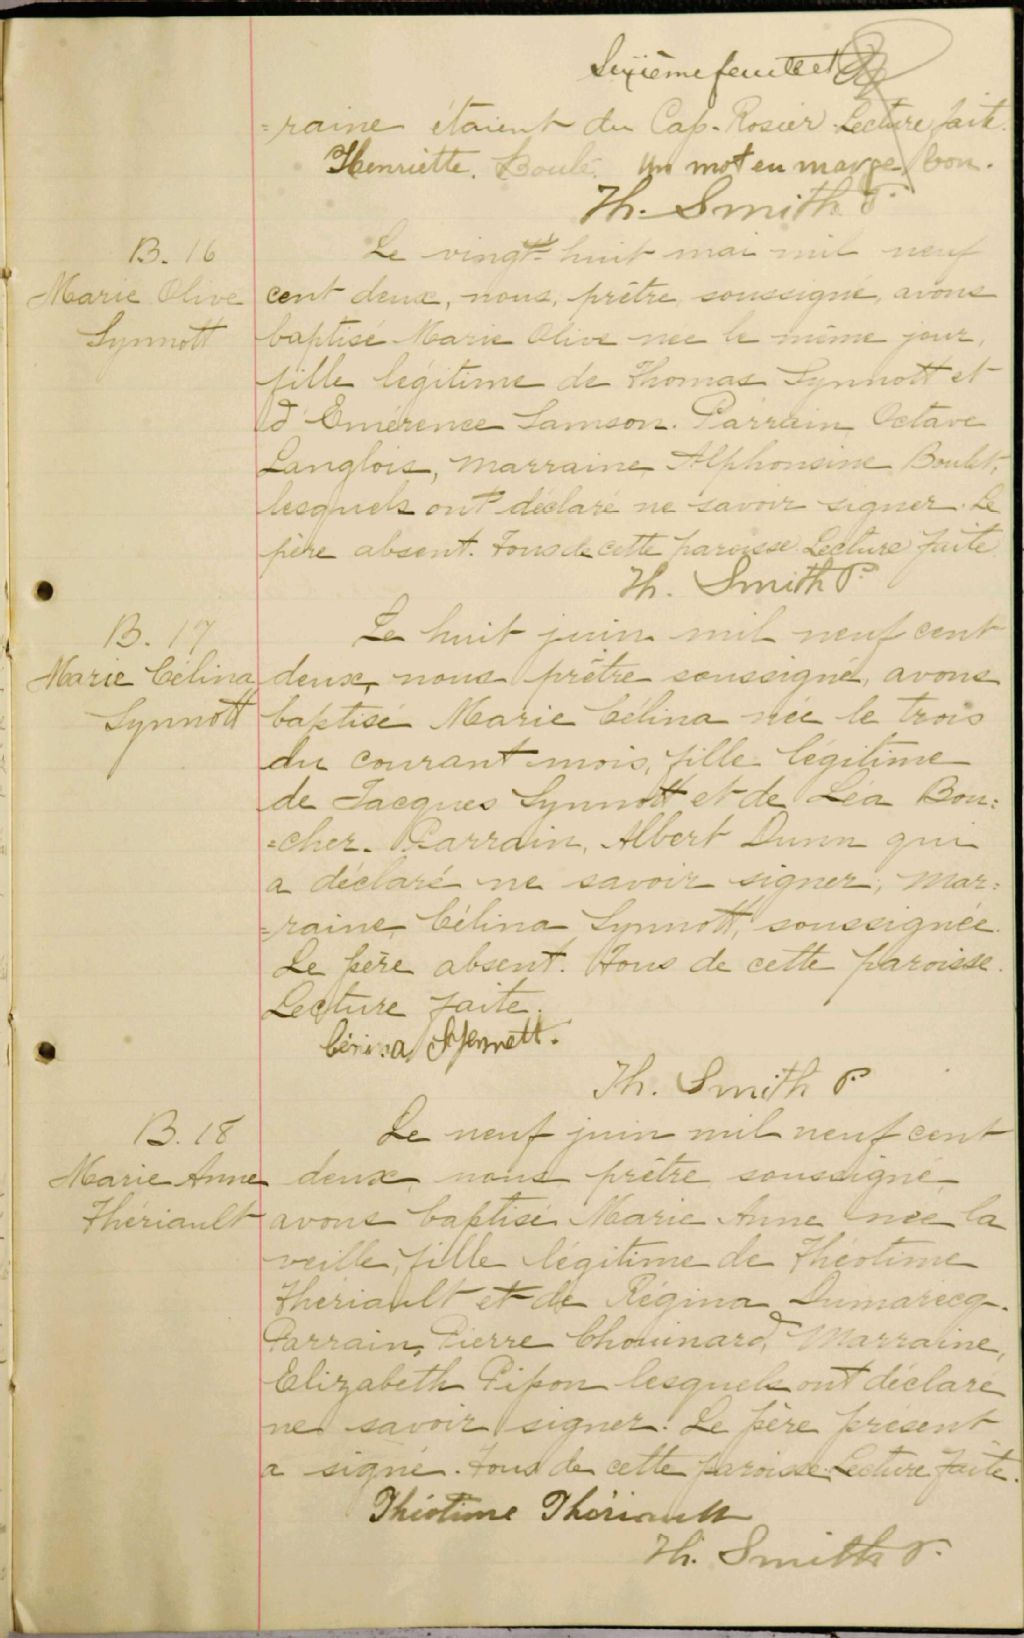 Sixième feuillet
=raine étaient du Cap-Rosier. Lecture faite.
Henriette Boulé. Un mot en marge bon.
Th. Smith P.
B. 16
Marie Olive
Synnott
Le vingt-huit mai mil neuf
cent deux, nous, prêtre soussigné, avons
baptisé Marie Olive née le même jour,
fille légitime de Thomas Synnott et
d'Emérence Samson. Parrain, Octave
Langlois, marraine, Alphonsine Boulet,
lesquels ont déclaré ne savoir signer. Le
père absent. Tous de cette paroisse. Lecture faite
Th. Smith P.
B. 17
Marie Célina
Synnott
Le huit juin mil neuf cent
deux, nous prêtre soussigné, avons
baptisé Marie Célina née le trois
du courant mois, fille légitime
de Jacques Synnott et de Léa Bou=
=cher. Parrain, Albert Dunn qui
a déclaré ne savoir signer, mar=
=raine, Célina Synnott, soussignée.
Le père absent. Tous de cette paroisse.
Lecture faite.
Th. Smith P.
B. 18
Marie Anne
Thériault
Le neuf juin mil neuf cent
deux, nous prêtre soussigné,
avons baptisé Marie Anne née la
veille, fille légitime de Théotime
Thériault et de Régina Dumarecq.
Parrain, Pierre Chouinard, Marraine,
Elizabeth Pipon lesquels ont déclaré
ne savoir signer. Le père présent
a signé. Tous de cette paroisse. Lecture faite.
Théotime Thériault
Th. Smith P.